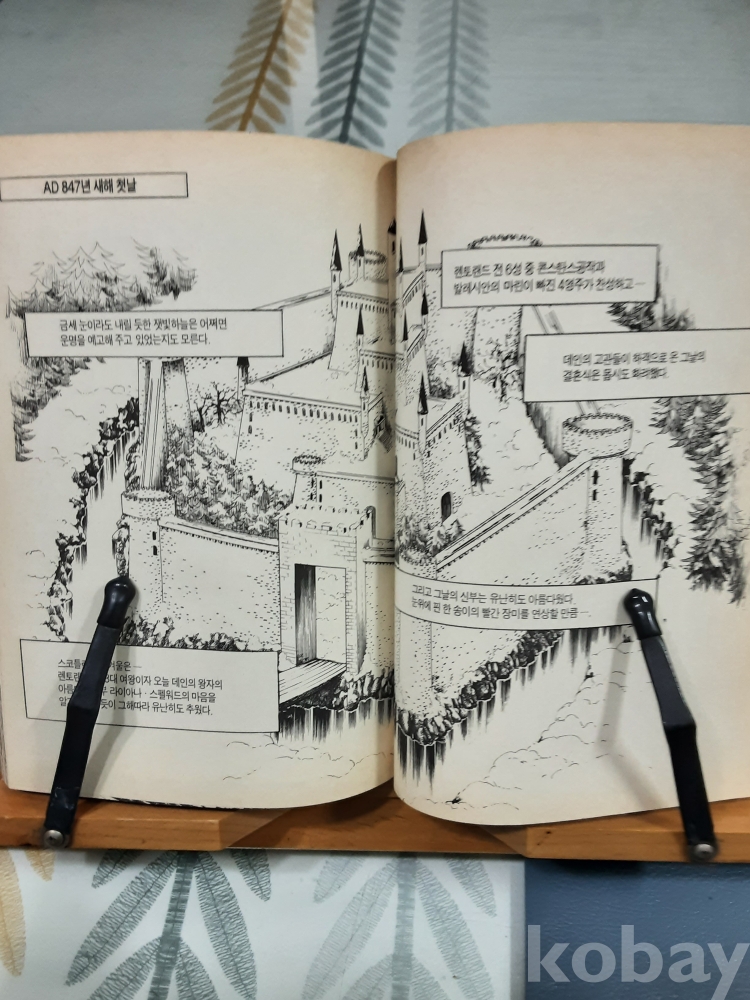 AD 847년 새해 첫날
금세 눈이라도 내릴 듯한 잿빛하늘은 어쩌면
운명을 예고해 주고 있었는지도 모른다.
스코틀 겨울은—
렌토랜 대 여왕이자 오늘 데인의 왕자의
아름 라이아나·스펠워드의 마음을
듯이 그해따라 유난히도 추웠다.
렌토랜드 전 6성 중 콘스탄스공작과
발레시안의 마린이 빠진 4영주가 찬성하고—
데인의 고관들이 하객으로 온 그날의
결혼식은 몹시도 화려했다.
그리고 그날의 신부는 유난히도 아름다웠다.
눈위에 핀 한 송이의 빨간 장미를 연상할 만큼…
kobay